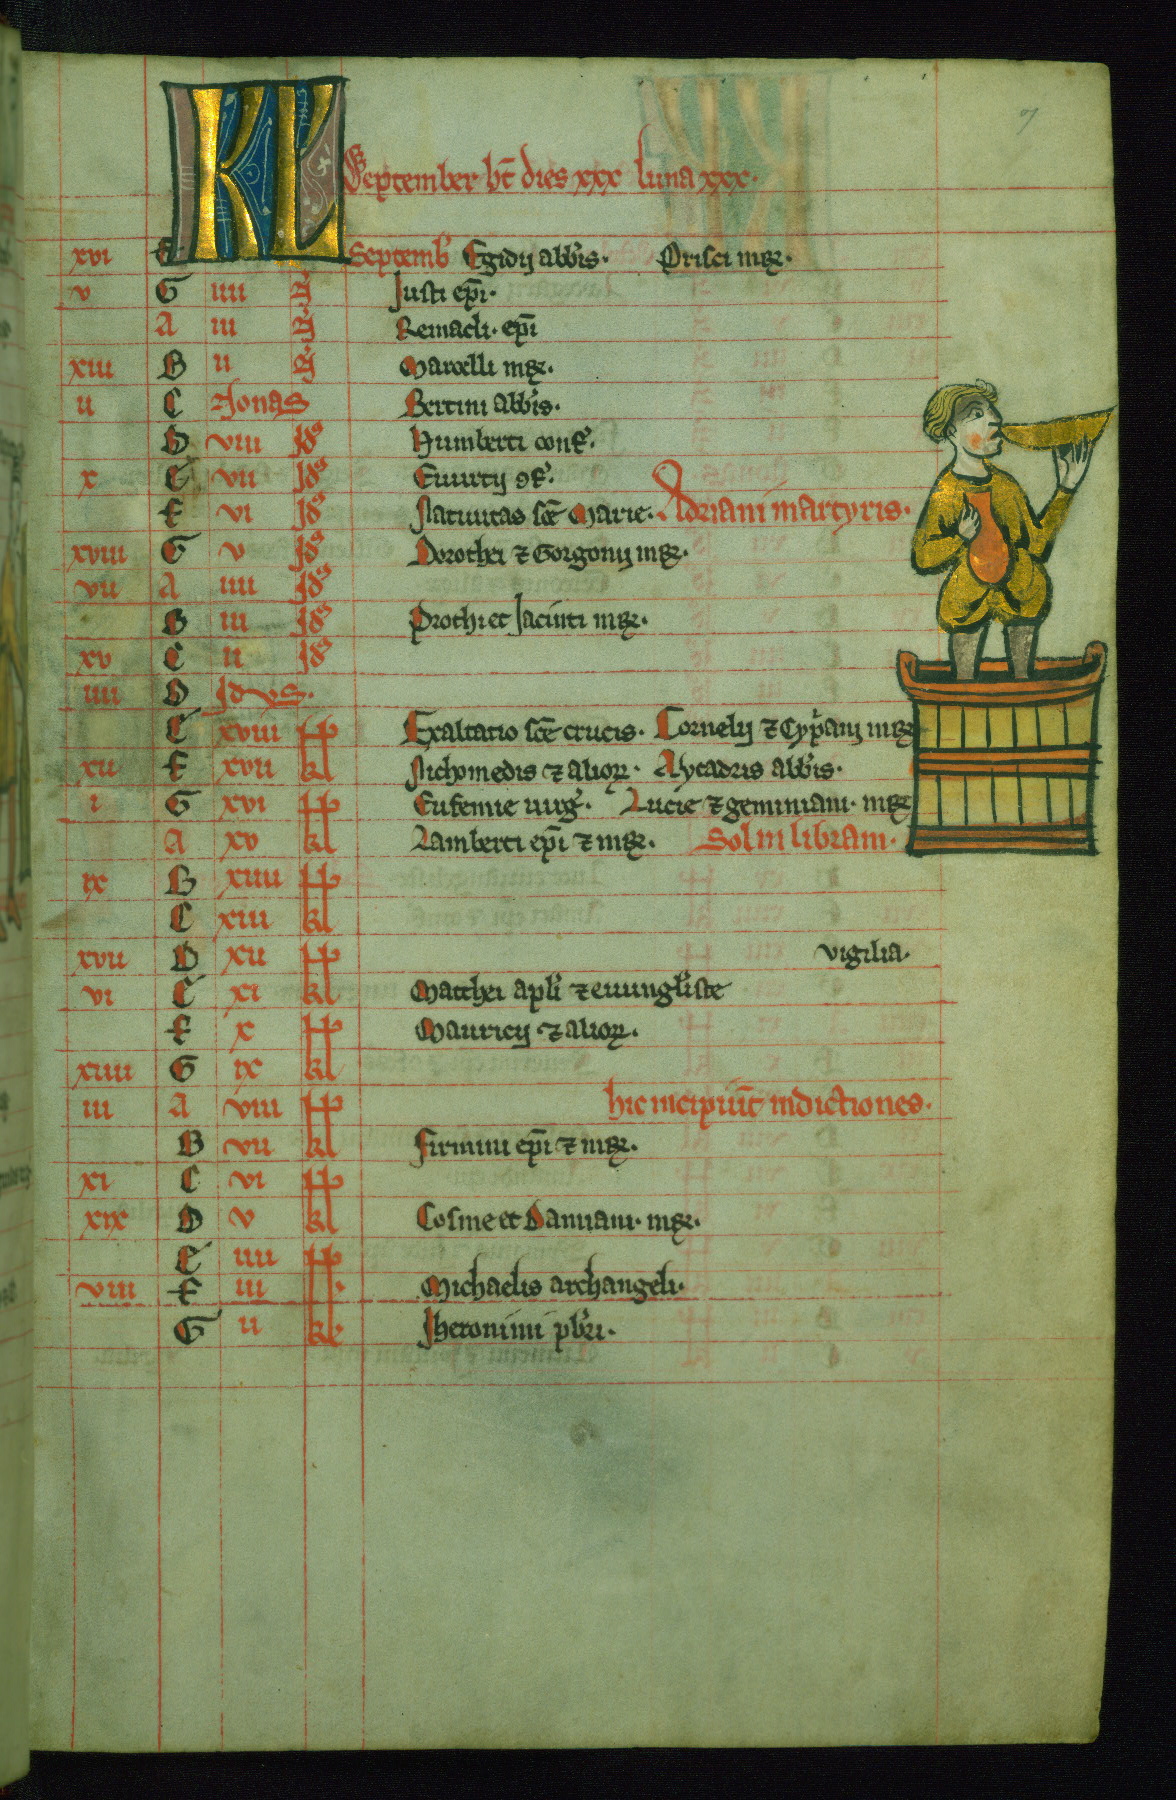 KL September ht dies xxx luna xxx.
xvi F Septemb Egidij abbis. Prisci mr.
v G iiii N Justi epi.
A iii N Remacli. epi
xiii B ii N Marcelli mr.
ii C Nonas Bertini abbis.
D viii Id Humberti conf.
x E vii Id Euurtij 9f.
F vi Id Natiuitas sce Marie. Adriani martyris.
xviii G v Id Dorothei ⁊ Gorgonij mr.
vii A iiii Id
B iii Id Prothi et Jacinti mr.
xv C ii Id
iiii D Idvs.
E xviii kl Exaltatio sce crucis. Cornelij ⁊ Cypani mr
xii F xvii kl Nichomedis ⁊ alior. Aycadris abbis.
i G xvi kl Eufemie uirg. Lucie ⁊ geminiani. mr
A xv kl Lamberti epi ⁊ mr. Sol in libram.
ix B xiiii kl
C xiii kl
xvii D xii kl vigilia.
vi E xi kl Matthei apli ⁊ euungliste
F x kl Mauricij ⁊ alior.
xiiii G ix kl
iii A viii kl hic incipiut indictiones.
B vii kl Firmini epi ⁊ mr.
xi C vi kl
xix D v kl Cosme et Damiani. mr.
E iiii kl
viii F iii kl Michaelis archangeli.
G ii kl Jheronimi pbri.